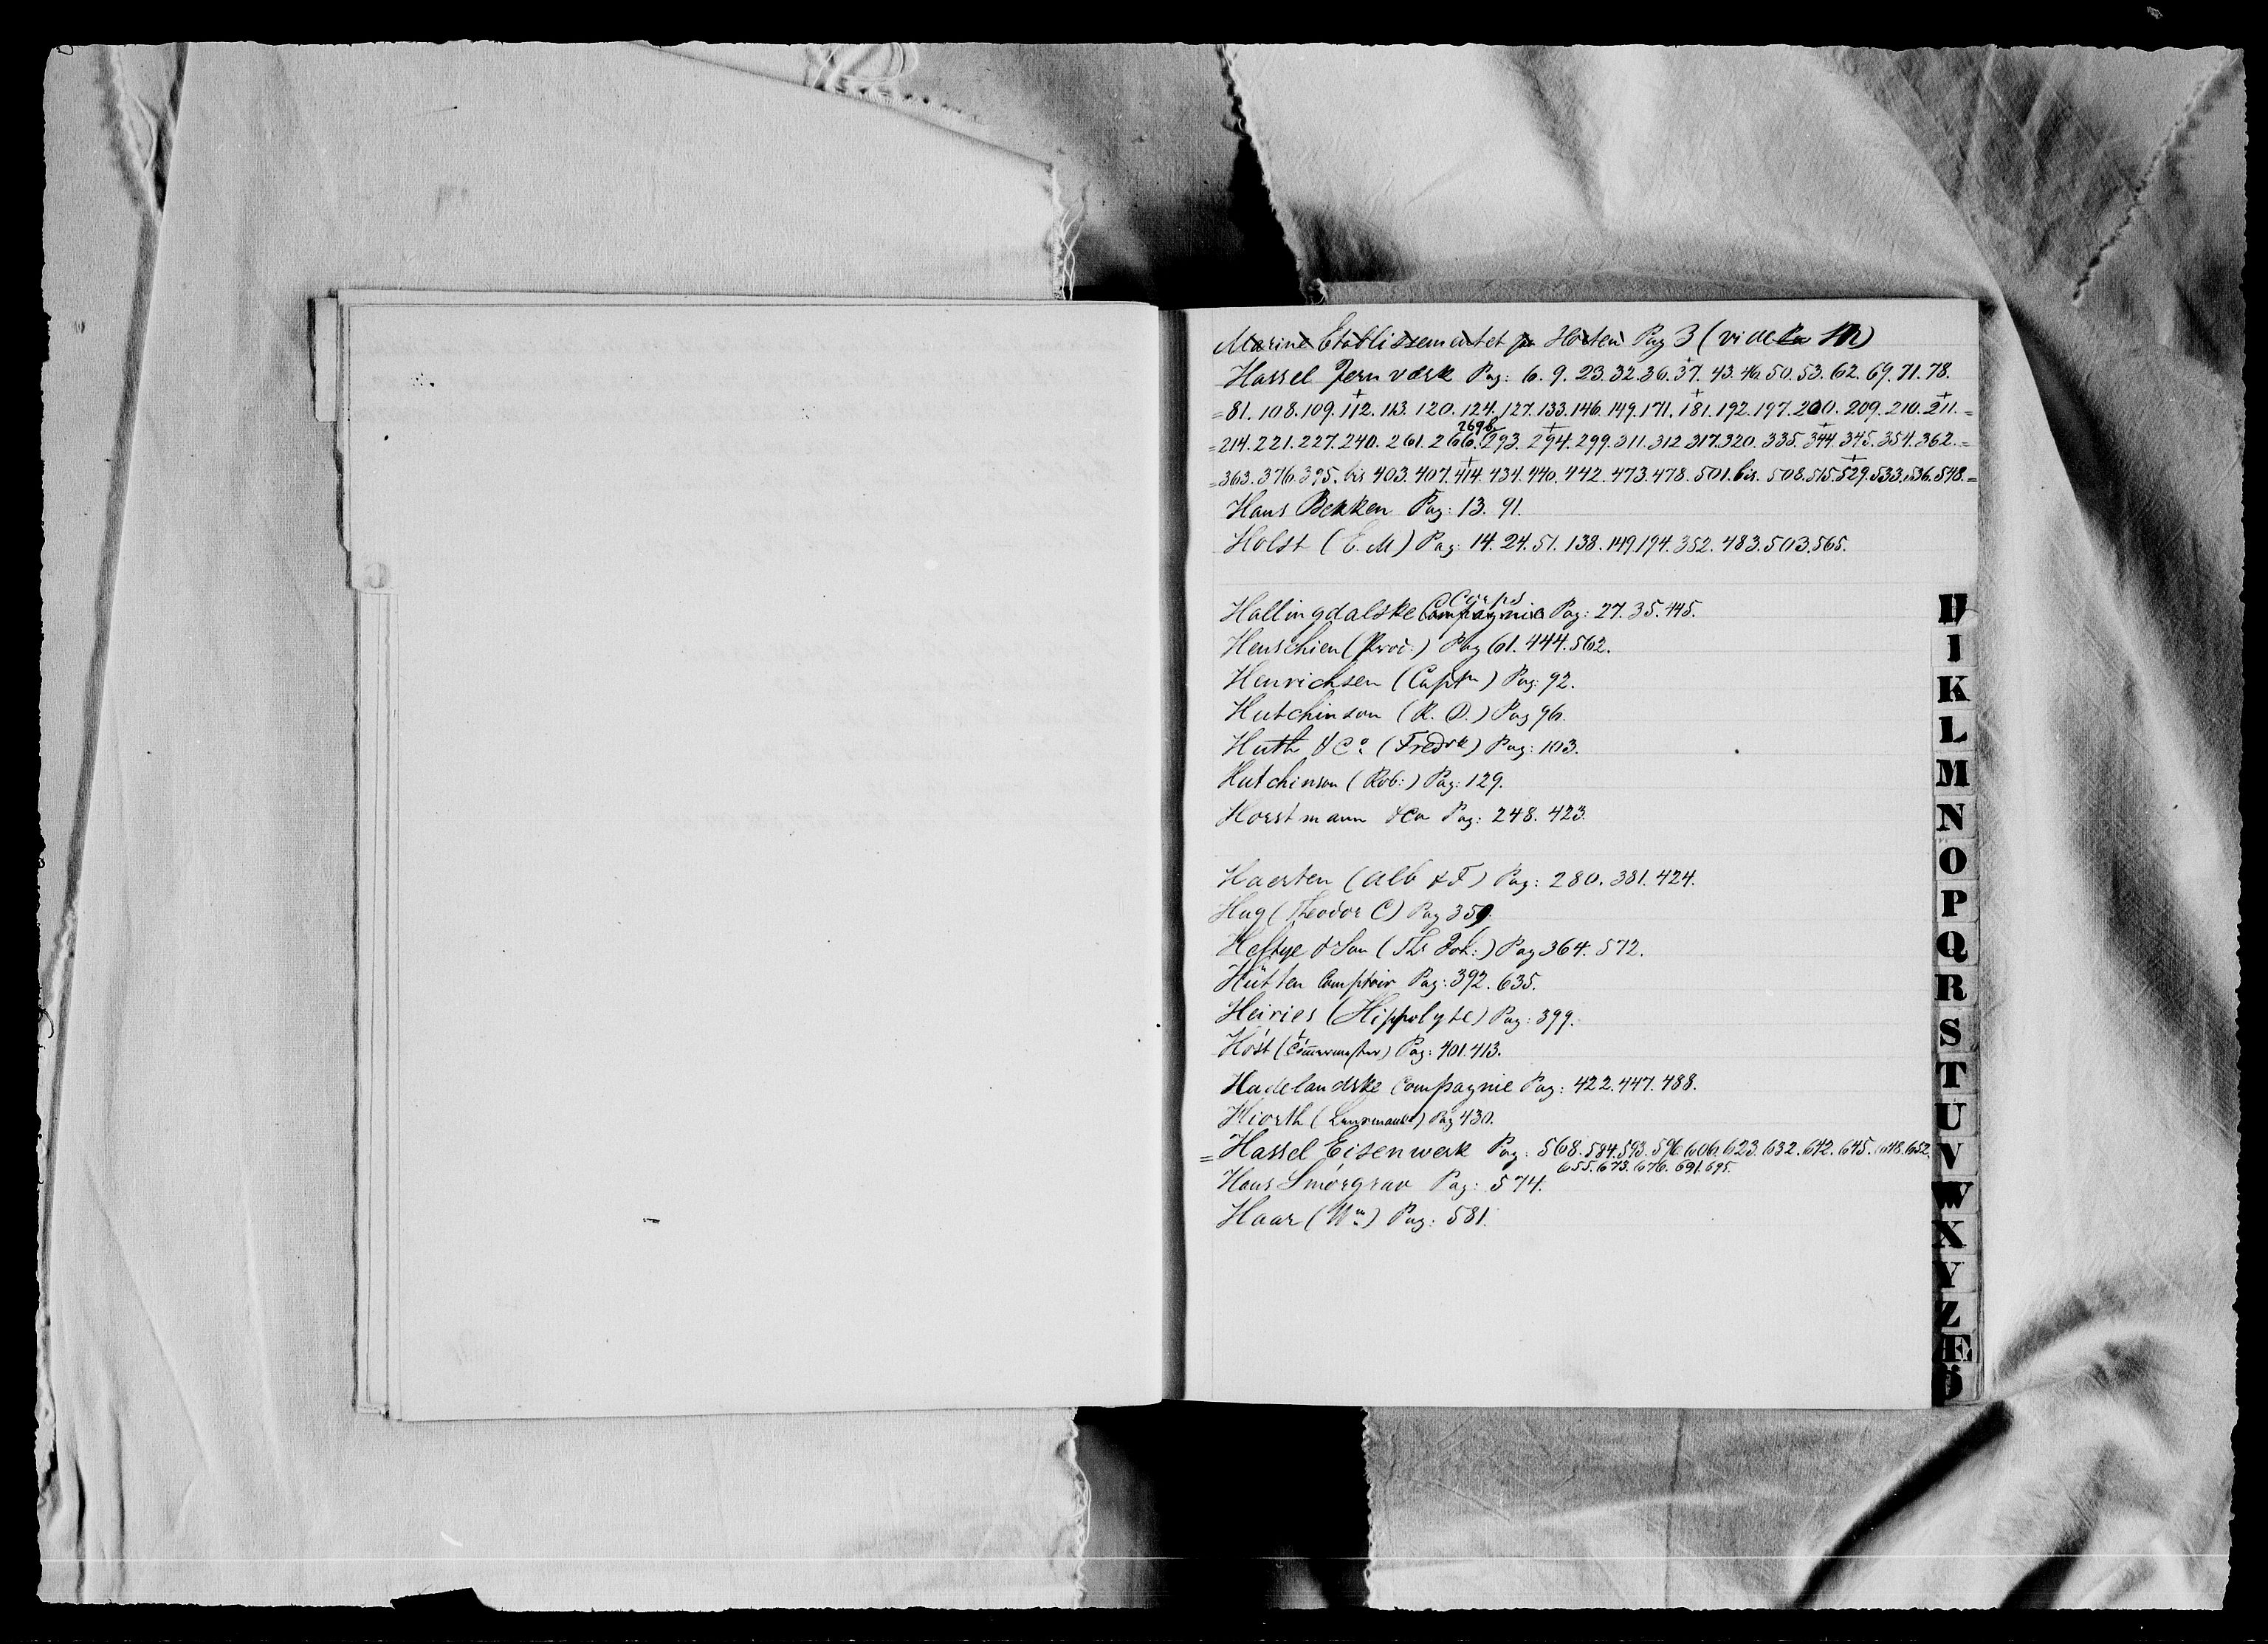 Marine Etablissementet pa Horten Pag 3 (vide M)
Hassel Jernværk Pag: 6. 9. 23. 32. 36. 37. 43. 46. 50. 53. 62. 69. 71. 78.
= 81. 108. 109. 112. 113. 120. 124. 127. 133. 146. 149. 171. 181. 192. 197. 200. 209. 210. 211. =
269b
= 214. 221. 227. 240. 261. 266. 293. 294. 299. 311. 312 317. 320. 335. 344. 345. 354. 362. =
= 363. 376. 395. bis 403. 407. 414. 434. 440. 442. 473. 478. 501. bis. 508. 515. 529. 533. 536. 548. =
Hans Bekken Pag: 13. 91.
Holst (E. M) Pag: 14. 24. 51. 138. 149. 194. 352. 483. 503. 565.
Corps
Hallingdalske Compagnie Pag: 27. 35. 445.
Henschien (Proc:) Pag 61. 444. 562.
Henrichsen (Captn) Pag: 92.
Hutchinson (R. D.) Pag 96.
Huth & Co (Fredrk) Pag: 103.
Hutchinson (Rob:) Pag: 129.
Horstmann & Co Pag: 248. 423.
Haerten (Alb & F) Pag: 280. 381. 424.
Hag (Theodor C) Pag 359.
Heftye & Son (Ths Joh:) Pag 364. 572.
Hütten Comptoir Pag: 392. 635.
Heiries (Hippolyte) Pag: 399.
Höst Pag: 401. 413.
Hadelandske Compagnie Pag: 422. 447. 488.
Hiorth (Lensmand) Pag 430.
= Hassel Eisenwerk Pag: 568. 584. 593. 596. 606. 623. 632. 642. 645. 648. 652.
655. 673. 676. 691. 695.
Hans Smörgrav Pag: 574.
Haar (Wm) Pag: 581.
H
I
K
L
M
N
O
P
Q
R
S
T
U
V
W
X
Y
Z
Æ
Ö